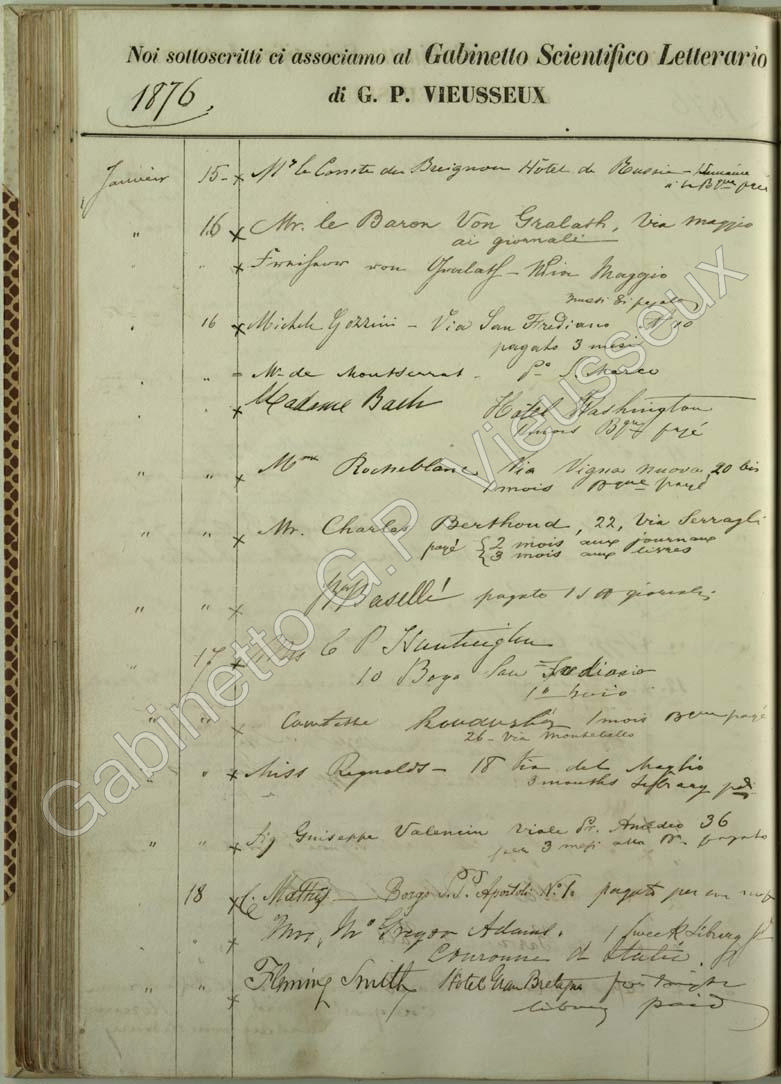 Noi sottoscritti ci associamo al Gabinetto Scientifico Letterario
1876. di G. P. VIEUSSEUX
Janvier 15 - x Mr le Comte du Hôtel de Russie -
à la Bque
" 16 x Mr. le Baron Von Gralath, Via Maggio
ai giornali
" " x Freiherr von Gralath - Via Maggio
pagato
" 16 x Michele Gozzini - Via San Frediano No 10
pagato 3 mesi
" " = Mr de Montserrat - S. Marco
x Madame Bach Hôtel Washington
Bque payé
" " x Mme Rocheblanc Via Vigna nuova 20 bis
1 mois Bque payé
" " x Mr. Charles Berthoud, 22, Via Serragli
payé { 2 mois aux journaux
3 mois aux livres
" " x pagato giornali
17 x C P Huntington
10 Borgo San Frediano
" " x Comtesse 1 mois Bque payé
26 - Via Montebello
" x Miss Reynolds - 18 Via del Maglio
3 months Library pd
" " x Sig Guiseppe Valencin Viale Pr. Amedeo 36
per 3 mesi alla pagato
18 x C. Mathey - Borgo S.S. Apostoli No 1. pagato per un
" x Mrs. Mc Gregor Adams. 1 week Library
Couronne d'Italie.
" " x Fleming Smith Hotel Gran Bretagna fortnight
library paid
Gabinetto G.P. Vieusseux